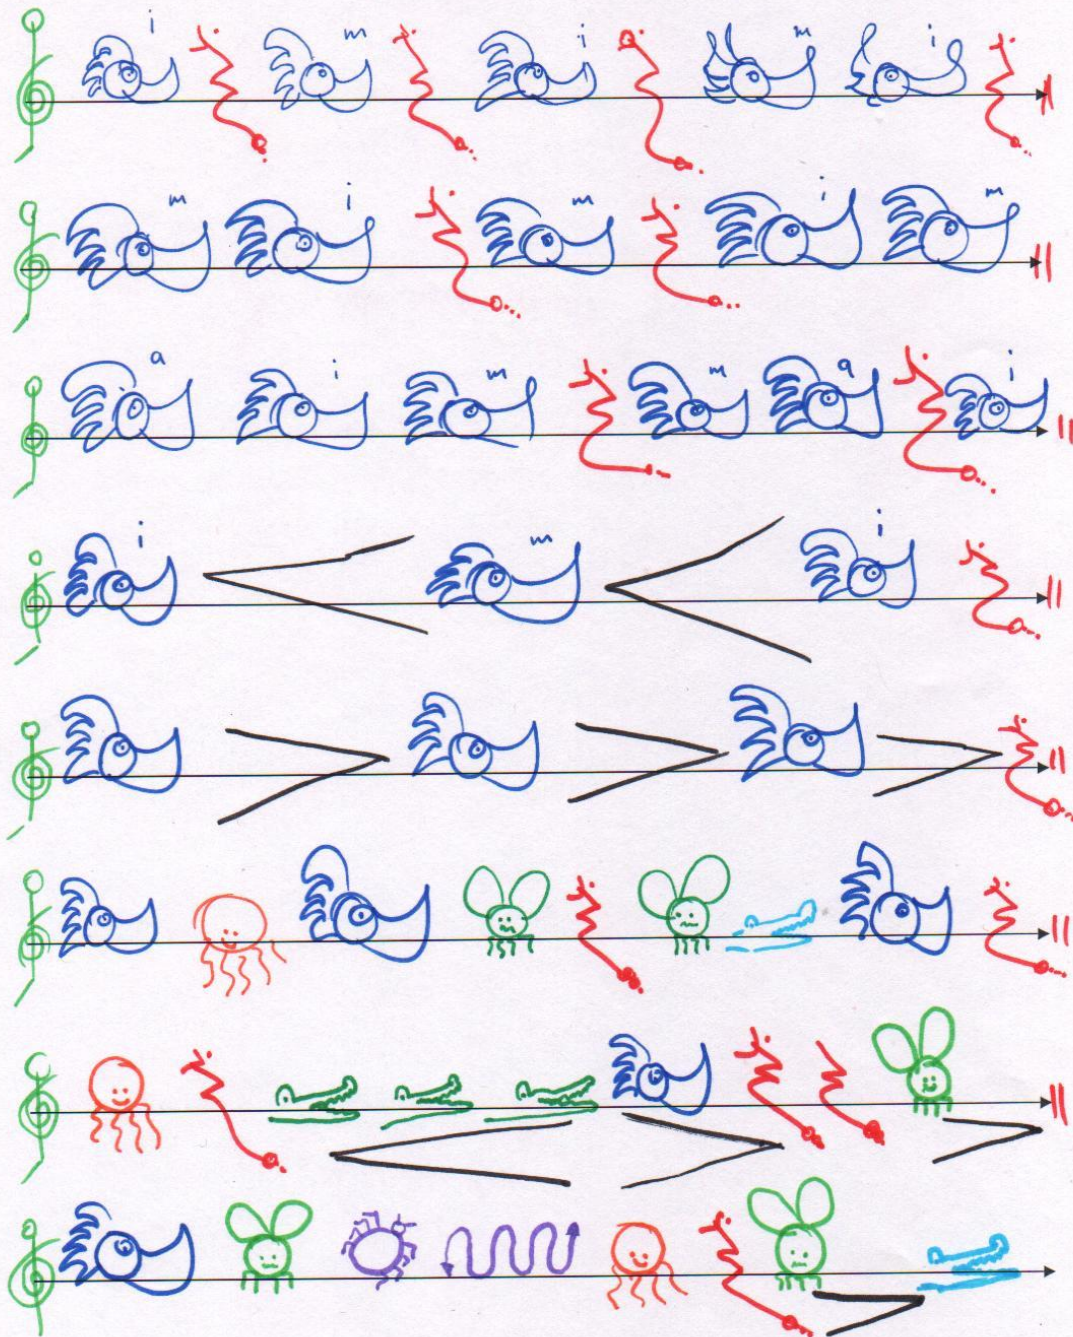 i m i m i
m i m i m
a i m m a i
i m i